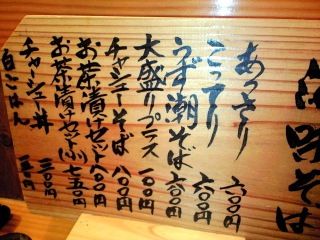 味そば
あっさり 六〇〇円
こってり 六〇〇円
うず潮そば 六〇〇円
大盛りプラス 一〇〇円
チャシューそば 八〇〇円
お茶漬けセット 八〇〇円
お茶漬けセット(小) 七五〇円
チャーシュー丼
白ごはん